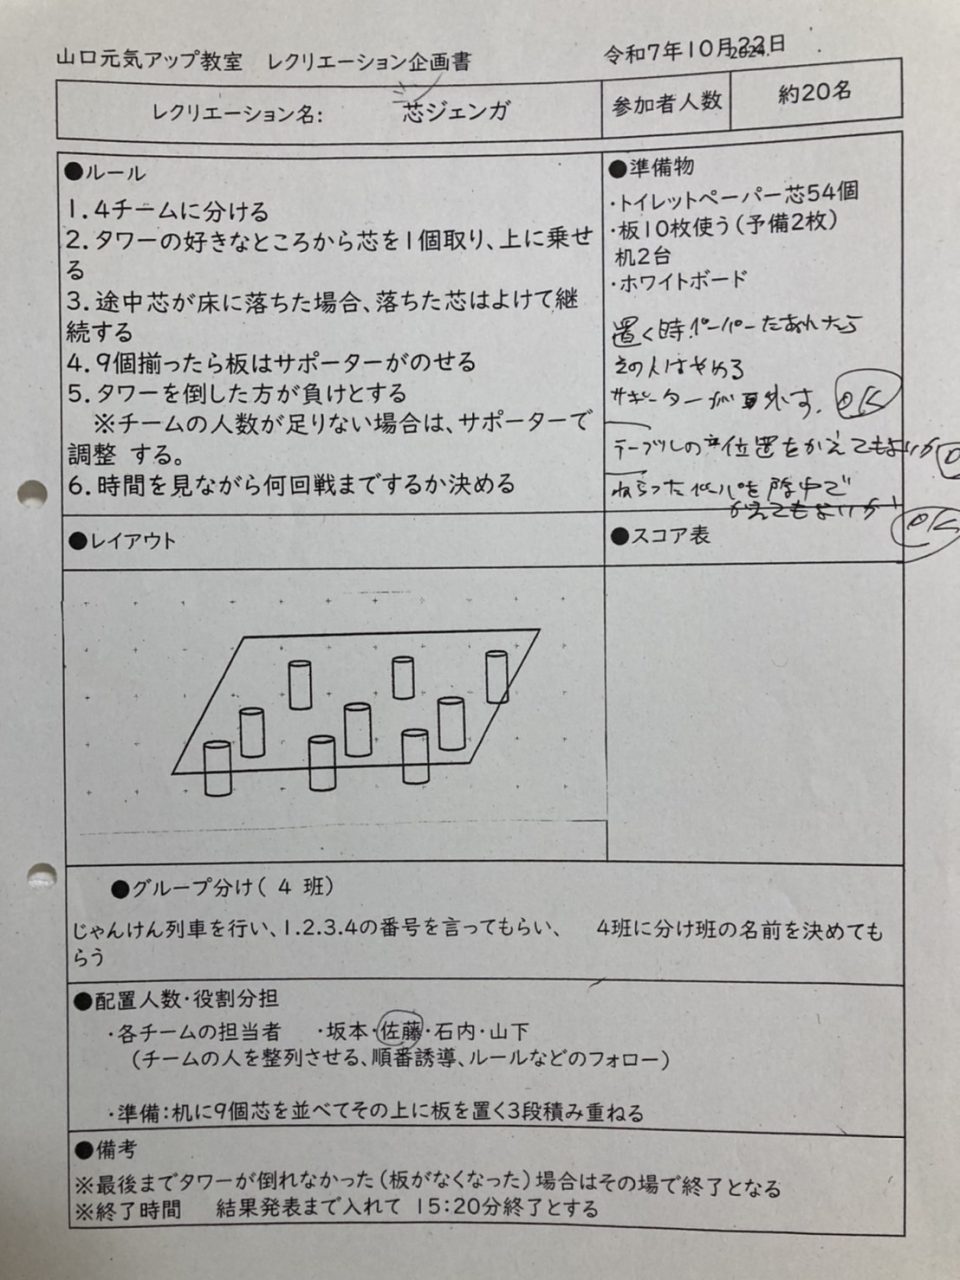 山口元気アップ教室　レクリエーション企画書
令和7年10月22日
レクリエーション名:　芯ジェンガ
参加者人数　約20名
●ルール
1.4チームに分ける
2.タワーの好きなところから芯を1個取り、上に乗せ
る
3.途中芯が床に落ちた場合、落ちた芯はよけて継
続する
4.9個揃ったら板はサポーターがのせる
5.タワーを倒した方が負けとする
※チームの人数が足りない場合は、サポーターで
調整 する。
6.時間を見ながら何回戦までするか決める
●準備物
・トイレットペーパー芯54個
・板10枚使う(予備2枚)
机2台
・ホワイトボード
置く時ペーパーたおれたら
その人はやめる
サポーターが 外す. OK
テーブルの 位置をかえてもよいか
ねらったペーパーを途中で
かえてもよいか OK
●レイアウト
●スコア表
●グループ分け( 4 班)
じゃんけん列車を行い、1.2.3.4の番号を言ってもらい、　4班に分け班の名前を決めても
らう
●配置人数・役割分担
・各チームの担当者　・坂本・佐藤・石内・山下
(チームの人を整列させる、順番誘導、ルールなどのフォロー)
・準備:机に9個芯を並べてその上に板を置く3段積み重ねる
●備考
※最後までタワーが倒れなかった(板がなくなった)場合はその場で終了となる
※終了時間　結果発表まで入れて 15:20分終了とする